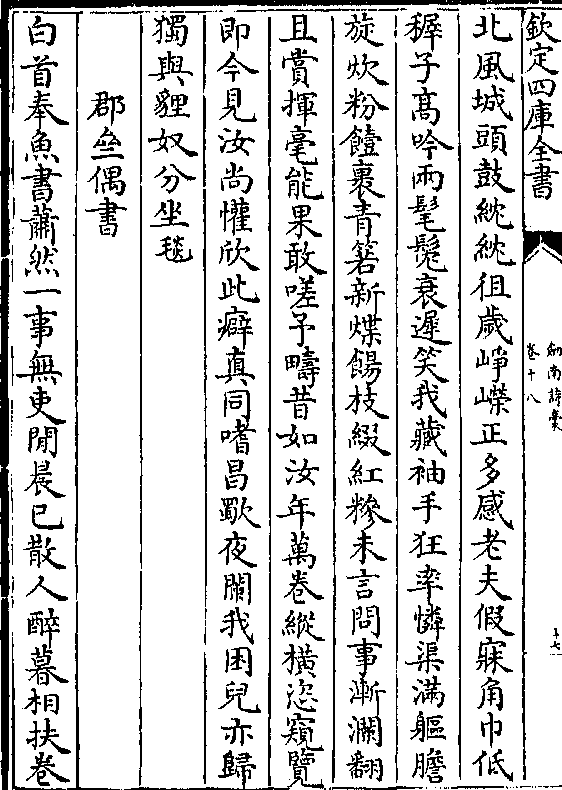 欽定四庫全書
劍南詩稾
卷十八
十七
北風城頭鼓紞紞徂歲崢嶸正多感老夫假寐角巾低
穉子髙吟兩髦髧衰遲笑我藏袖手狂率憐渠滿軀膽
旋炊粉饐裹青箬新煠餳枝綴紅糝未言問事漸瀾翻
且賞揮毫能果敢嗟予疇昔如汝年萬卷縱橫恣窺覽
即今見汝尚懽欣此癖真同嗜昌歜夜闌我困兒亦歸
獨與貍奴分坐毯
郡齋偶書
白首奉魚書蕭然一事無吏閒晨已散人醉暮相扶卷